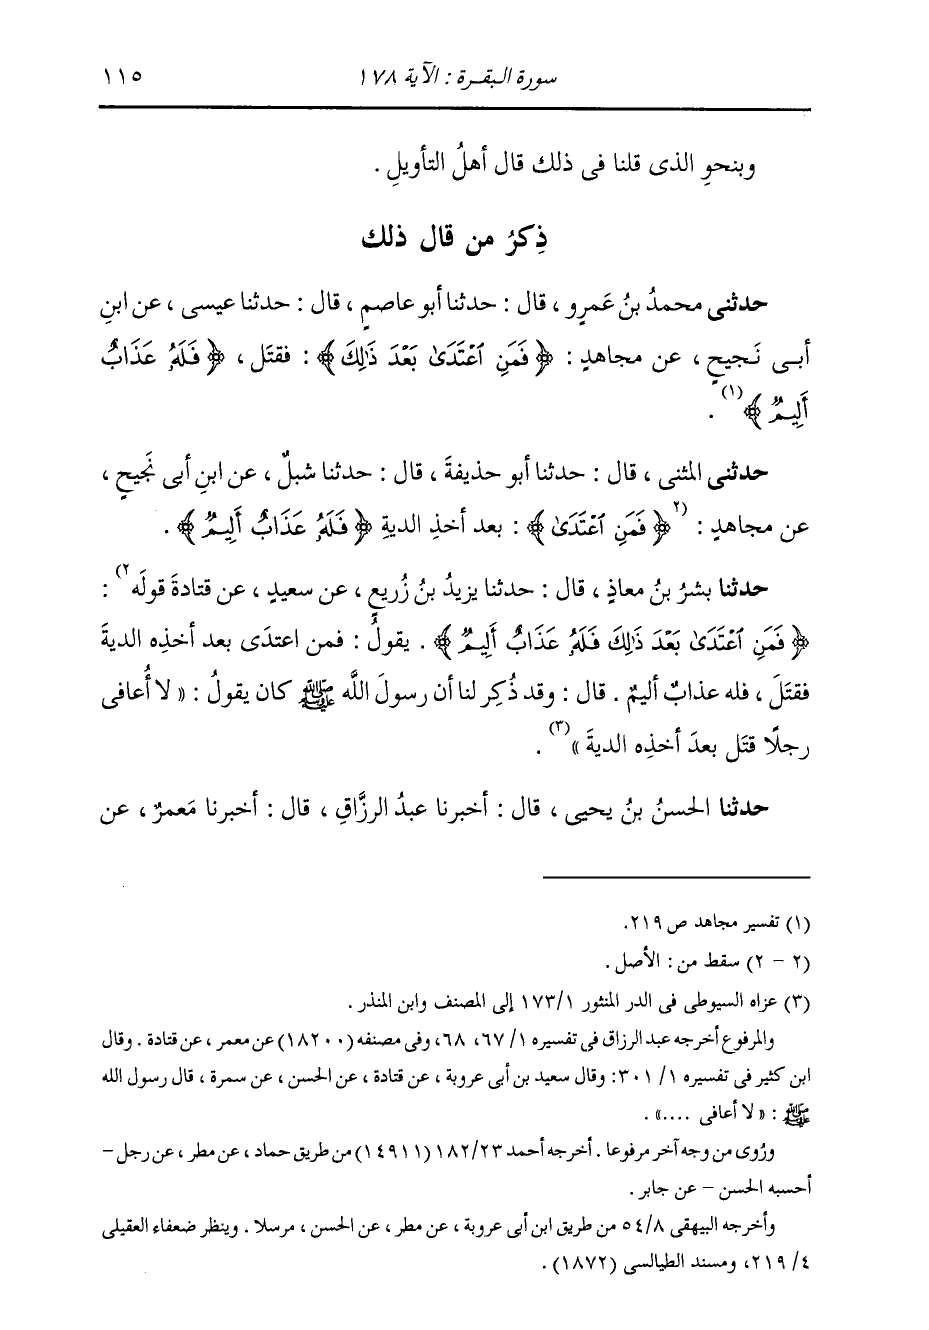 سورة البقرة : الآية ١٧٨ ١١٥
وبنحوِ الذى قلنا فى ذلك قال أهلُ التأويلِ .
ذِكرُ من قال ذلك
حدثنى محمدُ بنُ عَمرٍو ، قال : حدثنا أبو عاصمٍ ، قال : حدثنا عيسى ، عن ابنِ
أبى نَجيحٍ ، عن مجاهدٍ : ﴿ فَمَنِ ٱعْتَدَىٰ بَعْدَ ذَٰلِكَ ﴾ : فقتَل ، ﴿ فَلَهُۥ عَذَابٌ
أَلِيمٌ ﴾(١) .
حدثنى المثنى ، قال : حدثنا أبو حذيفةَ ، قال : حدثنا شبلٌ ، عن ابنِ أبى نَجيحٍ ،
عن مجاهدٍ : (٢﴿ فَمَنِ ٱعْتَدَىٰ ﴾ : بعد أخذِ الديةِ ﴿ فَلَهُۥ عَذَابٌ أَلِيمٌ ﴾ .
حدثنا بشرُ بنُ معاذٍ ، قال : حدثنا يزيدُ بنُ زُريعٍ ، عن سعيدٍ ، عن قتادةَ قولَه٢) :
﴿ فَمَنِ ٱعْتَدَىٰ بَعْدَ ذَٰلِكَ فَلَهُۥ عَذَابٌ أَلِيمٌ ﴾ . يقولُ : فمن اعتدَى بعد أخذِه الديةَ
فقتَلَ ، فله عذابٌ أليمٌ . قال : وقد ذُكِر لنا أن رسولَ اللَّه ﷺ كان يقولُ : « لا أُعافى
رجلًا قتَل بعدَ أخذِه الديةَ »(٣) .
حدثنا الحسنُ بنُ يحيى ، قال : أخبرنا عبدُ الرزَّاقِ ، قال : أخبرنا مَعمرٌ ، عن
(١) تفسير مجاهد ص ٢١٩.
(٢ - ٢) سقط من : الأصل .
(٣) عزاه السيوطى فى الدر المنثور ١٧٣/١ إلى المصنف وابن المنذر .
والمرفوع أخرجه عبد الرزاق فى تفسيره ١/ ٦٧، ٦٨، وفى مصنفه (١٨٢٠٠) عن معمر ، عن قتادة . وقال
ابن كثير فى تفسيره ١/ ٣٠١: وقال سعيد بن أبى عروبة ، عن قتادة ، عن الحسن ، عن سمرة ، قال رسول الله
ﷺ : « لا أعافى ....» .
ورُوى من وجه آخر مرفوعا . أخرجه أحمد ١٨٢/٢٣ (١٤٩١١) من طريق حماد ، عن مطر ، عن رجل -
أحسبه الحسن - عن جابر .
وأخرجه البيهقى ٥٤/٨ من طريق ابن أبى عروبة ، عن مطر ، عن الحسن ، مرسلا . وينظر ضعفاء العقيلى
٤/ ٢١٩، ومسند الطيالسى (١٨٧٢) .